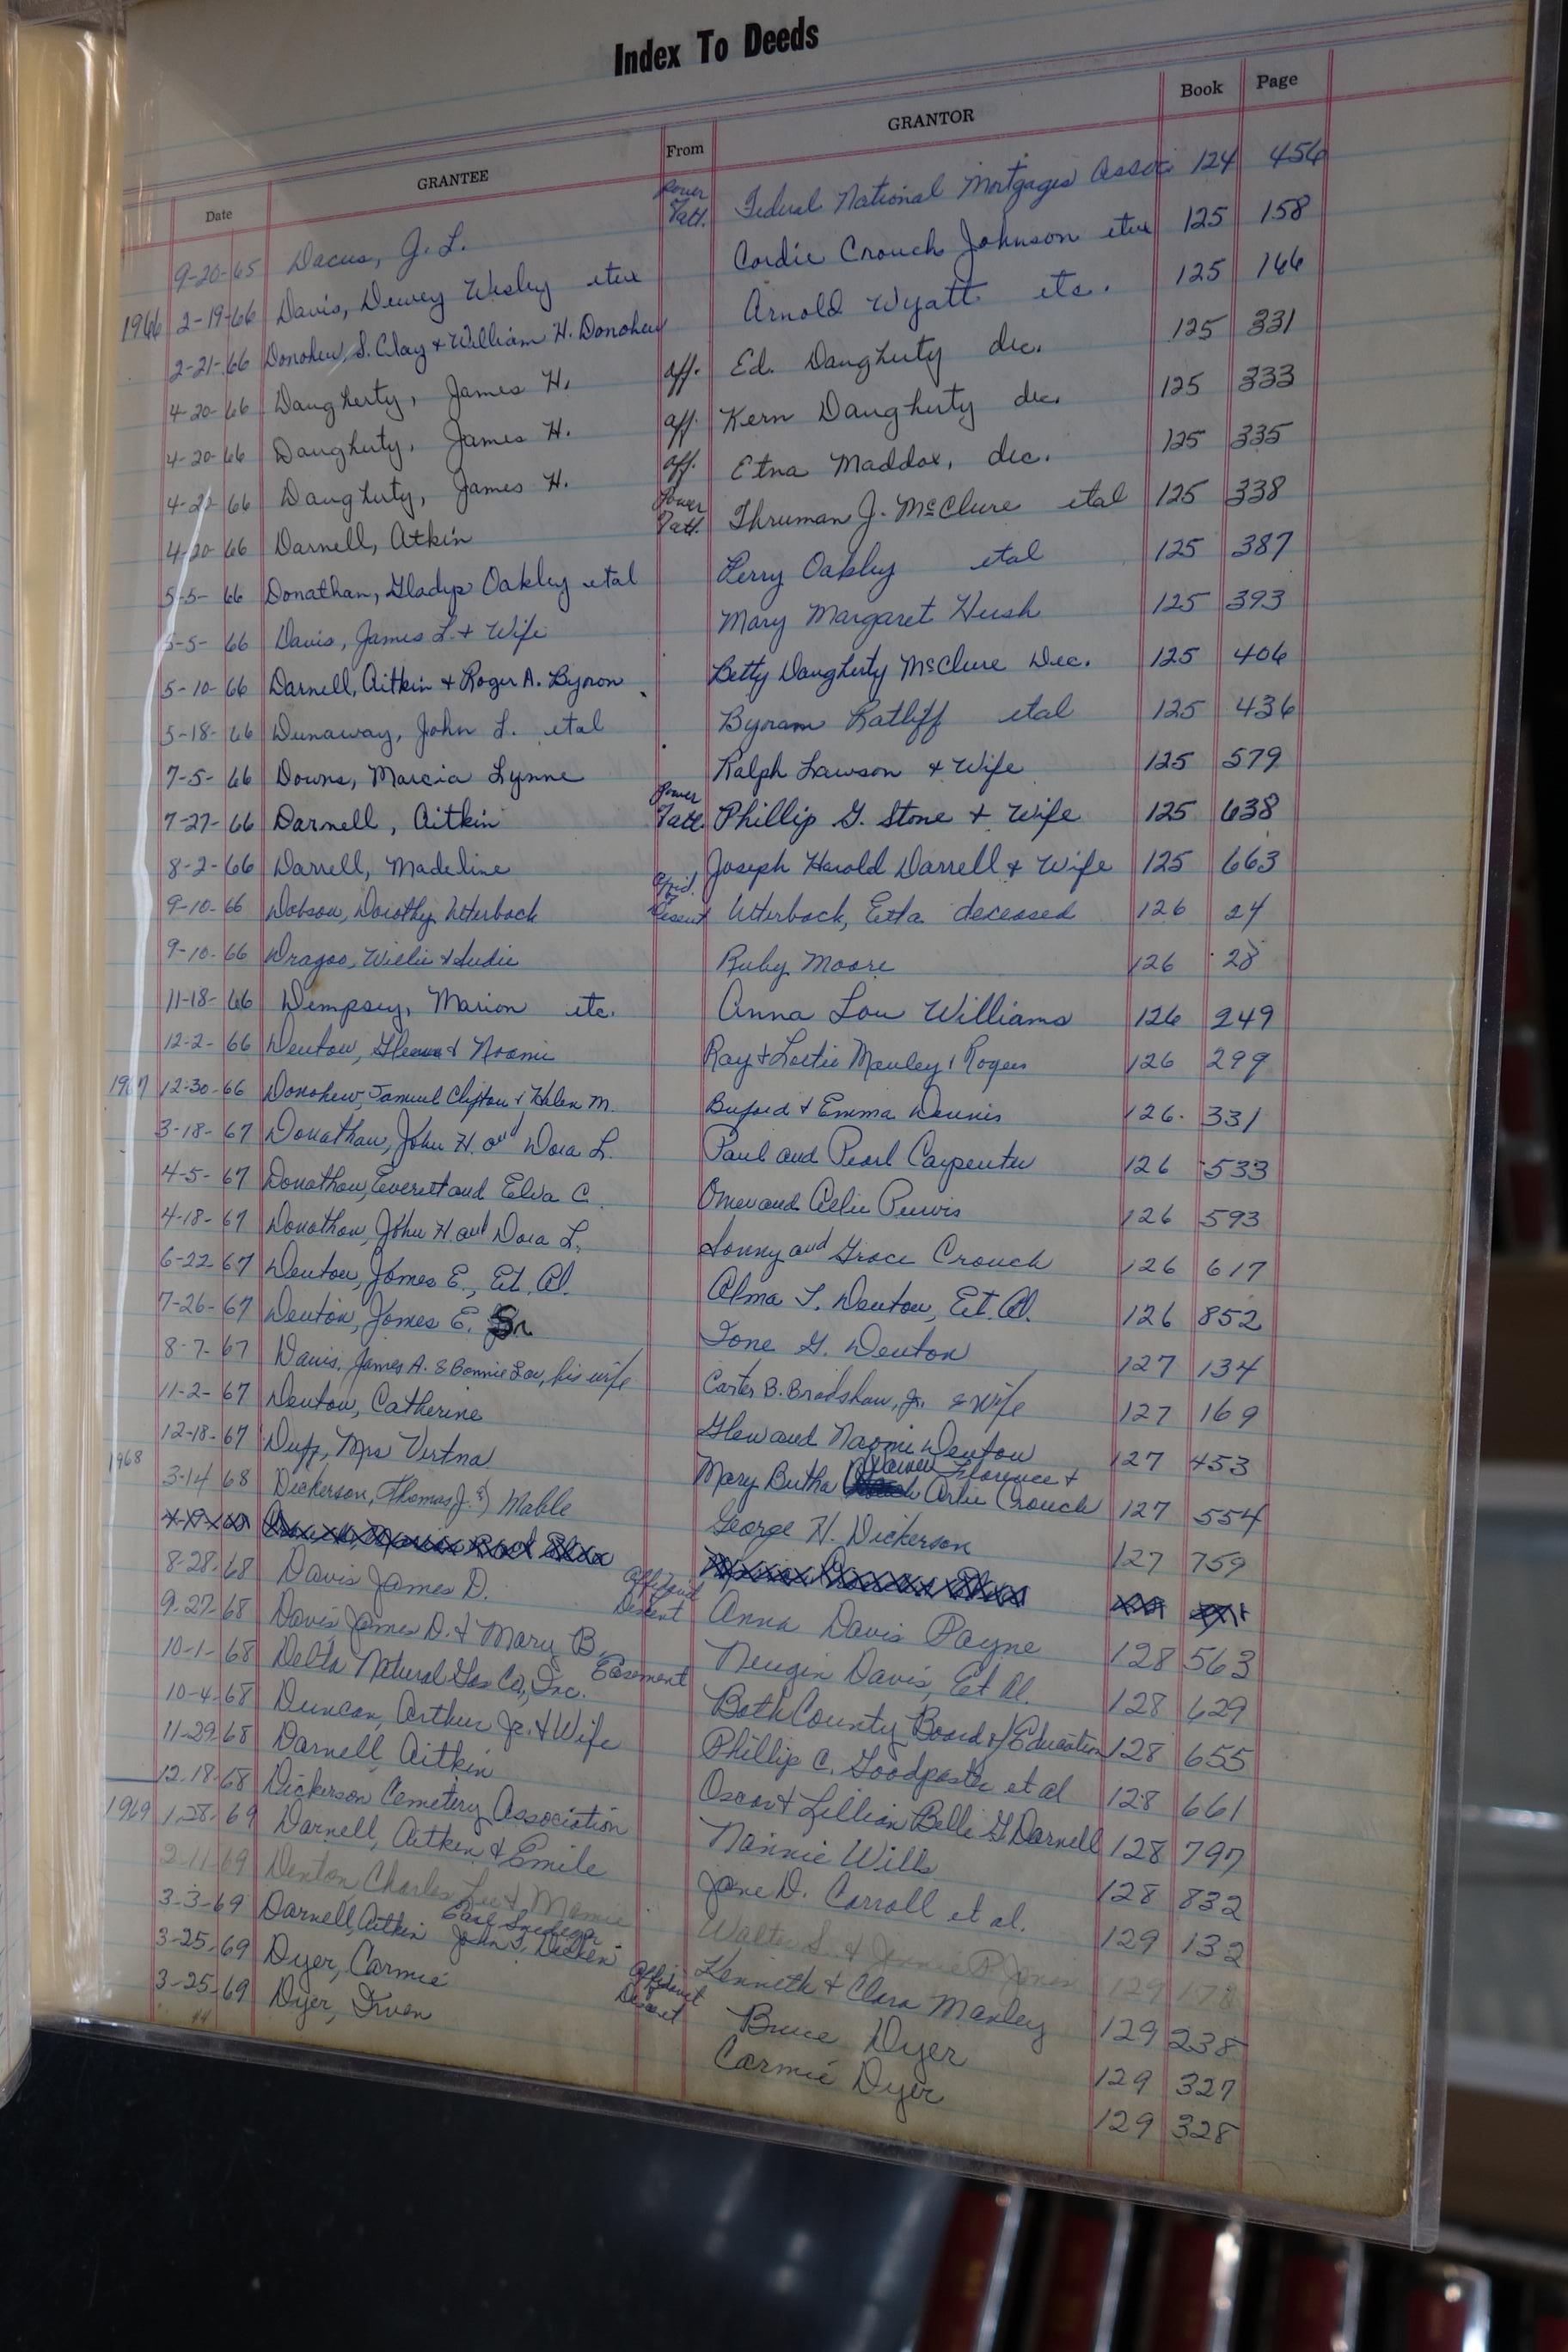 Index To Deeds
Date GRANTEE From GRANTOR Book Page
9-20-65 Dacus, J. L. Power Att. Federal National Mortgages Assoc. 124 456
1966 2-19-66 Davis, Dewey Wesley etux Cordie Crouch Johnson etux 125 158
2-21-66 Donohew, S. Clay & William H. Donohew Arnold Wyatt etc. 125 166
4-20-66 Daugherty, James H. aff. Ed. Daugherty dec. 125 331
4-20-66 Daugherty, James H. aff. Kern Daugherty dec. 125 333
4-20-66 Daugherty, James H. aff. Etna Maddox, dec. 125 335
4-20-66 Darnell, Atkin Power Att. Thruman J. McClure etal 125 338
5-5-66 Donathan, Gladys Oakley etal Perry Oakley etal 125 387
5-5-66 Davis, James L. & Wife Mary Margaret Hush 125 393
5-10-66 Darnell, Aitkin & Roger A. Byron Betty Daugherty McClure Dec. 125 406
5-18-66 Dunaway, John L. etal Byram Ratliff etal 125 436
7-5-66 Downs, Marcia Lynne Ralph Lawson & Wife 125 579
7-27-66 Darnell, Aitkin Power Att. Phillip G. Stone & Wife 125 638
8-2-66 Darrell, Madeline Joseph Harold Darrell & Wife 125 663
9-10-66 Dobson, Dorothy Utterback Descent Utterback, Etta deceased 126 24
9-10-66 Dragoo, Willie & Sudie Ruby Moore 126 28
11-18-66 Dempsey, Marion etc. Anna Lou Williams 126 249
12-2-66 Denton, Glenn & Noomi Ray & Lottie Manley Rogers 126 299
1967 12-30-66 Donohew, Samuel Clifton & Helen M. Buford & Emma Dennis 126. 331
3-18-67 Donathan, John H. and Dora L. Paul and Pearl Carpenter 126 533
4-5-67 Donathan, Everett and Elva C. Omer and Allie Purvis 126 593
4-18-67 Donathan, John H. and Dora L. Sonny and Grace Crouch 126 617
6-22-67 Denton, James E., Et. Al. Alma T. Denton, Et. Al. 126 852
7-26-67 Denton, James E. Sr. Ione G. Denton 127 134
8-7-67 Davis, James A. & Bonnie Lou, his wife Carter B. Bradshaw, Jr. & Wife 127 169
11-2-67 Denton, Catherine Glen and Naomi Denton 127 453
1968 12-18-67 Duff, Mrs Virtna Mary Butha Florence & Arlie Crouch 127 554
3-14 68 Dickerson, Thomas J. & Mable George H. Dickerson 127 759
8-28-68 Davis James D. Affid and Descent Anna Davis Payne 128 563
9-27-68 Davis James D. & Mary B. Neugin Davis, Et Al. 128 629
10-1-68 Delta Natural Gas Co., Inc. Easement Bath County Board of Education 128 655
10-4-68 Duncan, Arthur Jr. & Wife Phillip C. Goodpaster et al 128 661
11-29-68 Darnell, Aitkin Oscar & Lillian Belle G Darnell 128 797
12-18-68 Dickerson Cemetery Association Nannie Wills 128 832
1969 1-28-69 Darnell, Aitken & Emile Jane D. Carroll et al. 129 132
2-11-69 Denton Charles Lee & Mamie Walter S. & Jennie P. Jones 129 178
3-3-69 Darnell, Aitkin Earl Snedegar John T. Decker Kenneth & Clara Manley 129 238
3-25-69 Dyer, Carmie Affidavit Descent Bruce Dyer 129 327
3-25-69 Dyer, Irven Carmie Dyer 129 328